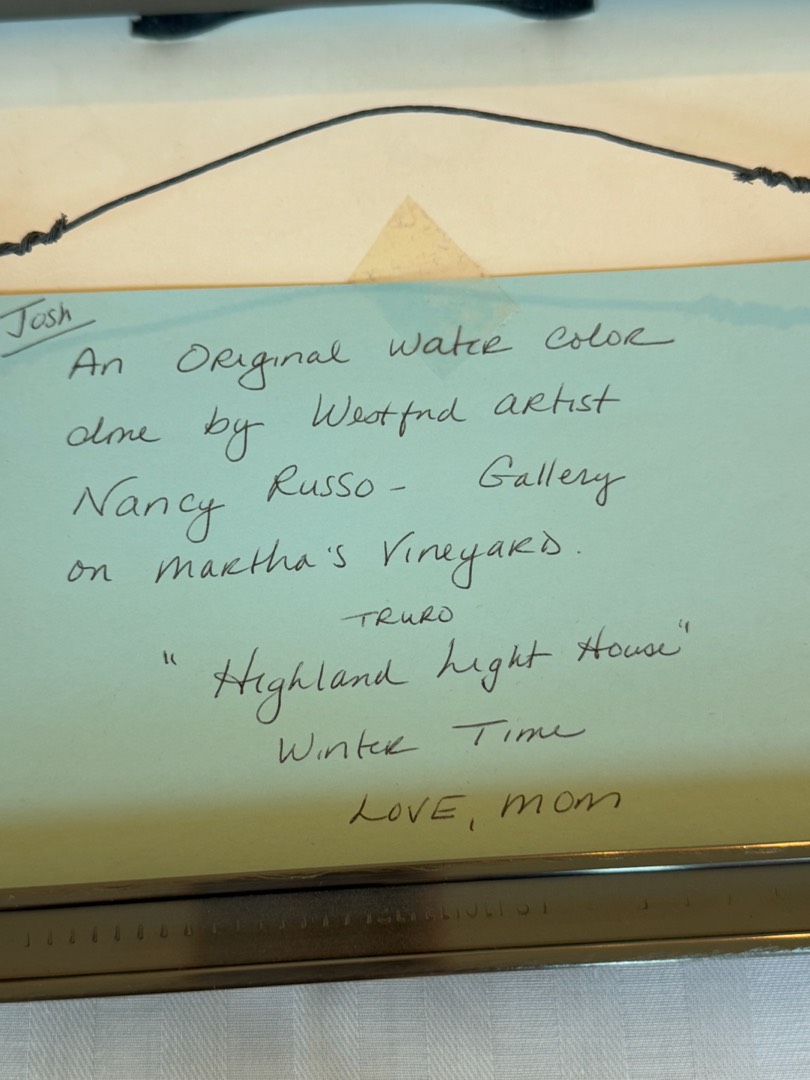 Josh
An Original Water Color
done by Westford artist
Nancy Russo - Gallery
on Martha's Vineyard.
TRURO
"Highland Light House"
Winter Time
LOVE, MOM